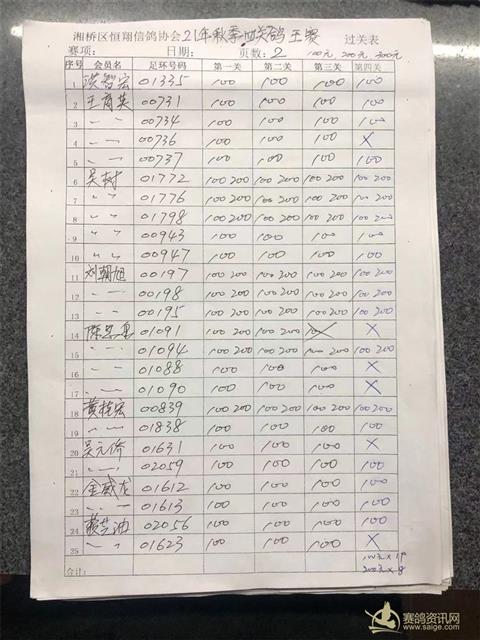 湘桥区恒翔信鸽协会21年秋季四关鸽王赛 过关表
赛项: 日期: 页数: 2 100元 200元 300元
序号 会员名 足环号码 第一关 第二关 第三关 第四关
1 洪智宏 01335 100 100 100 100
2 王育英 00731 100 100 100 100
3 〃 〃 00734 100 100 100 100
4 〃 〃 00736 100 100 100 X
5 〃 〃 00737 100 100 100 100
6 吴村 01772 100 200 100 200 100 200 100 200
7 〃 〃 01776 100 200 100 200 100 200 100 200
8 〃 〃 01798 100 200 100 200 100 200 100 200
9 〃 〃 00943 100 100 100 100
10 〃 〃 00947 100 100 100 100
11 刘朝旭 00197 100 200 100 200 100 200 100 200
12 〃 〃 00198 100 200 100 200 100 200 100 200
13 〃 〃 00195 100 200 100 200 100 200 100 200
14 01091 100 200 100 200 X
15 〃 〃 01094 100 200 100 200 100 200 100 200
16 〃 〃 01088 100 100 100 X
17 〃 〃 01090 100 100 100 X
18 黄桂宏 00839 100 200 100 200 100 200 100 200
19 〃 〃 01838 100 100 100 100
20 吴元侨 01631 100 100 100 X
21 〃 〃 02059 100 100 100 100
22 金威龙 01612 100 100 100 100
23 〃 〃 01613 100 100 100 100
24 02056 100 100 100 100
25 〃 〃 01623 100 100 100 X
合计: 100元x19
200元x8
赛鸽资讯网
www.saige.com